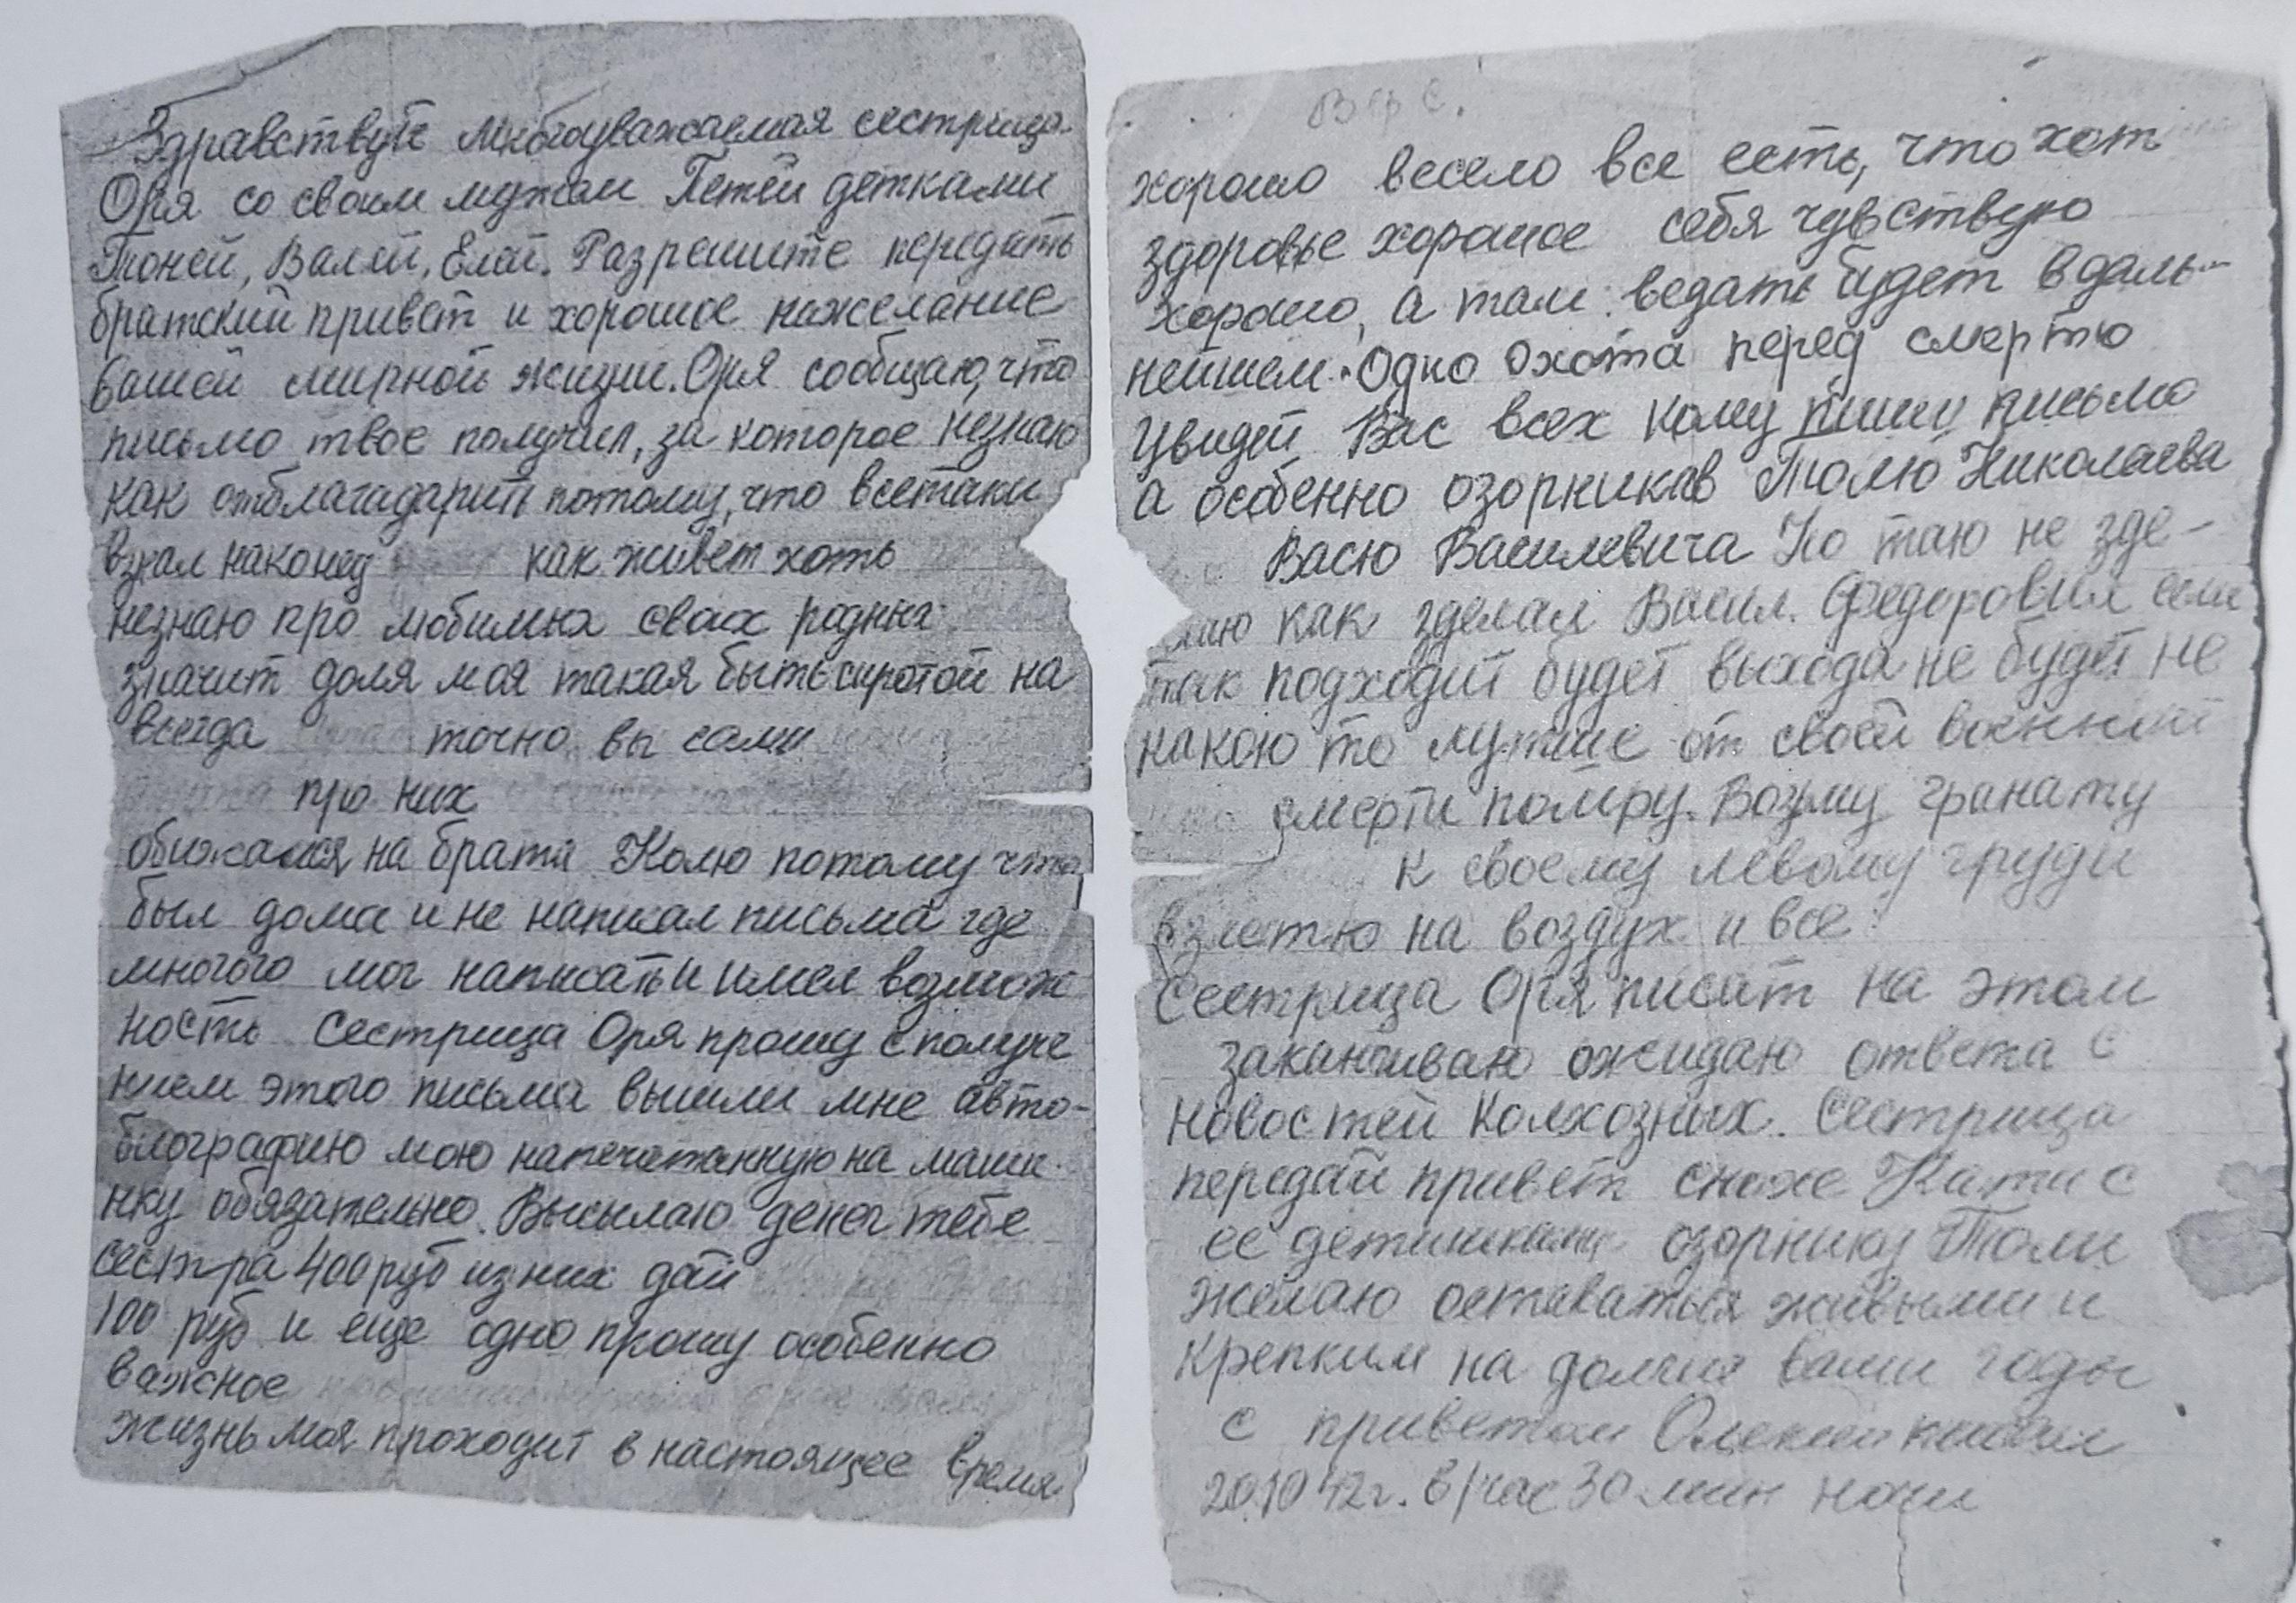 Здравствуйте многоуважаемая сестрица
Оря со своим мужом Петей детками
Тоней, Валей, Елай. Разрешите передать
братский привет и хорошое пажелание
вашей мирной жизни. Оря сообщаю, что
письмо твое получил, за которое незнаю
как отблагадарить потому, что всетаки
взнал наконец как живет хоть
незнаю про любимых своих родных
значит доля моя такая быть сиротой на
всегда точно вы сами
про них
обижался на брата Колю потому что
был дома и не написал письма где
многого мог написать и имел возмож
ность Сестрица Оря прошу с получе
нием этого письма вышли мне авто-
биографию мою напечатанную на маши
нку обязательно. Высылаю денег тебе
сестра 400 руб из них дай
100 руб и еще одно прошу особенно
важное
жизнь моя проходит в настоящее время
хорошо весело все есть, что хот
здоровье хорошое себя чувствую
хорошо, а там ведать будет в даль-
нейшем. Одно охота перед смертю
увидей Вас всех кому пишу письмо
а особенно озорников Толю Николаева
Васю Василевича Но таю не зде-
лаю как зделал Васил. Федоровия если
так подходит будет выхода не будет не
накою то лутше от своей военной
смерти помру. Возму гранату
к своему левому груди
взлетю на воздух и все
Сестрица Оря писат на этом
заканчиваю ожидаю ответа с
новостей Колхозных. Сестрица
передай привет снохе Кати с
ее детишками озорнику Толи
желаю оставаться живыми и
крепким на долгие ваши годы
с приветом Олексей писал
20.10 42г. в 1 час 30 мин ночи